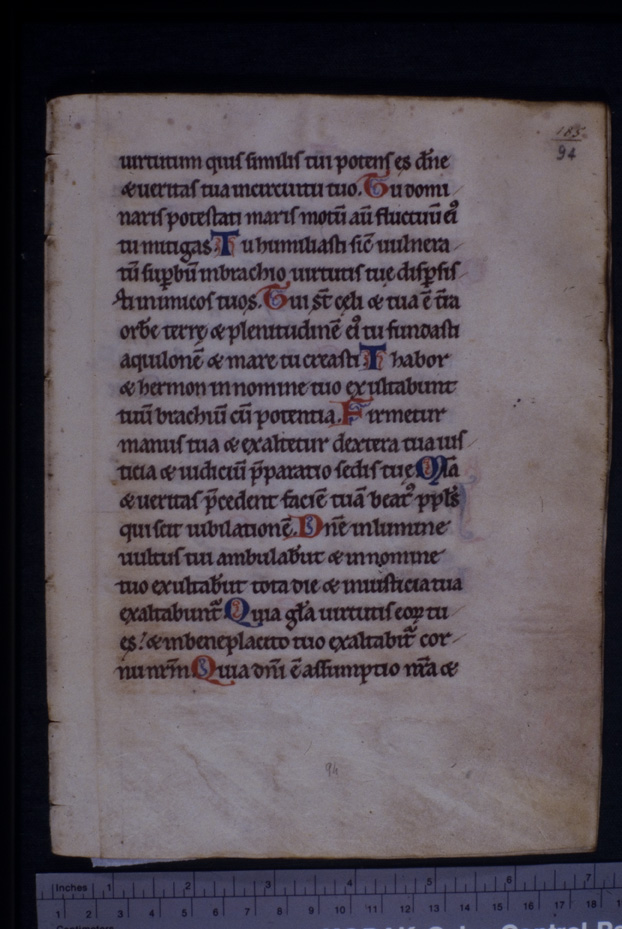 185
94
uirtutum quis similis tui potens es dñe
&ueritas tua incircuitu tuo. Tu domi
naris potestati maris motũ aũ fluctuũ eiꝰ
tu mitigas Tu humiliasti sic̃ uulnera
tũ suꝑbũ inbrachio uirtutis tuę disꝑsis
ti inimicos tuos. Tui st̃ cęli & tua ẽ tr̃a
orbẽ terrę & plenitudinẽ eiꝰ tu fundasti
aquilonẽ & mare tu creasti Thabor
& hermon in nomine tuo exultabunt
tuũ brachiũ cũ potentia. Firmetur
manus tua & exaltetur dextera tua ius
ticia & iudiciũ p̃paratio sedis tuę Mĩa
& ueritas p̃cedent faciẽ tuã beatꝰ ppl̃s
qui scit iubilationẽ. Dñe inlumine
uultus tui ambulab̃ut & innomine
tuo exultab̃ut tota die & iniusticia tua
exaltabunt̃ Quia gl̃a uirtutis eoꝝ tu
es! & inbeneplacito tuo exaltabit̃ cor
nu nr̃m Quia dñi ẽ assumptio nr̃a &
94
Inches 1 2 3 4 5 6 7
1 2 3 4 5 6 7 8 9 10 11 12 13 14 15 16 17 18
Centimetres